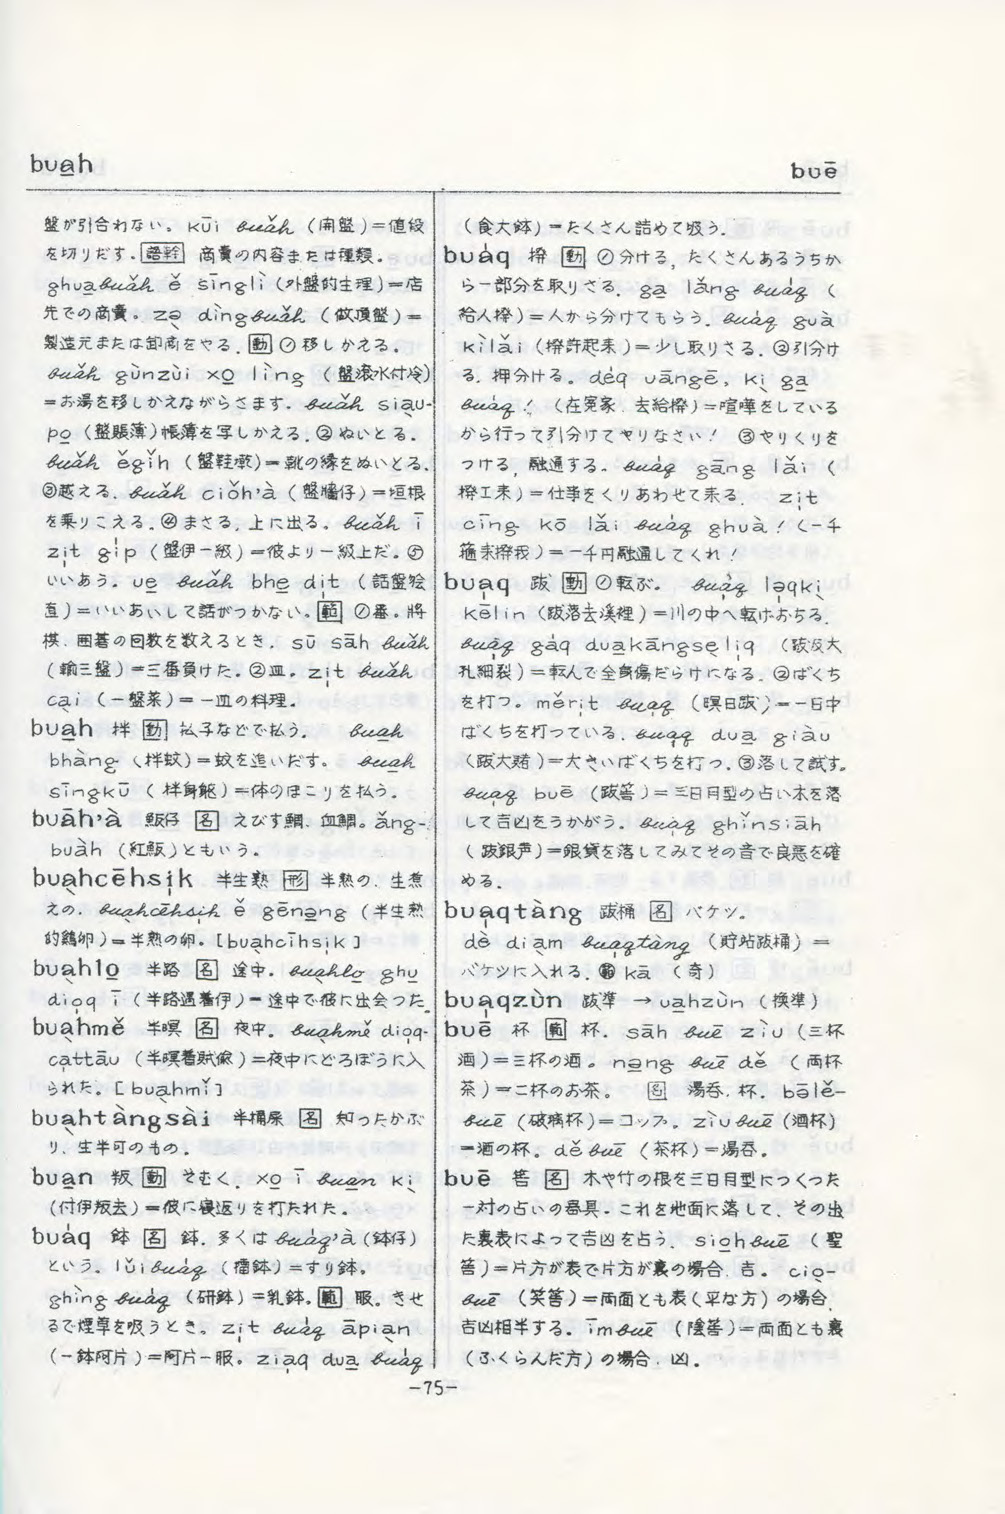 bua̲h
buē
盤が引合わない。kūi buǎh (開盤)=値段
を切りだす. 語幹 商賣の内容または種類.
ghua̲buǎh ě sīnglì (外盤的生理)=店
先での商賣。zə̲ dìngbuǎh (做頂盤)=
製造元または卸商をやる. 動 ①移しかえる.
buǎh gùnzùi xo̲ lìng (盤滾水付冷)
=お湯を移しかえながらさます. buǎh siạu-
po̲ (盤賬薄)帳薄を写しかえる. ②ぬいとる.
buǎh ěgìh (盤鞋墘)=靴の縁をぬいとる.
③越える. buǎh ciǒh'à (盤牆仔)=垣根
を乗りこえる. ④まさる. 上に出る。buǎh ī
zịt gịp (盤伊一級)=彼より一級上だ。⑤
いいあう. ue̲ buǎh bhe̲ dịt (話盤𣍐
直)=いいあいして話がつかない。範 ①番. 将
棋. 囲碁の回数を数えるとき. sū sāh buǎh
(輸三盤)=三番負けた. ②皿. zịt buǎh
cại (一盤菜)= 一皿の料理.
bua̲h 拌 動 払子などで払う. bua̲h
bhàng (拌蚊)=蚊を追いだす。bua̲h
sīngkū (拌身軀)=体のほこりを払う.
buāh'à 魬仔 名 えびす鯛. 血鯛。ǎng-
buàh (紅魬)ともいう.
buạhcēhsịk 半生熟 形 半熟の. 生煮
えの. buạhcēhsịk ě gēnạng (半生熟
的鶏卵)=半熟の卵. [buạhcīhsịk]
buạhlo̲ 半路 名 途中. buạhlo̲ ghu
dịoq ī (半路遇着伊)=途中で彼に出会った.
buạhmě 半暝 名 夜中. buạhmě dịoq-
cạttāu (半暝着賊偸)=夜中にどろぼうに入
られた. [buạhmǐ]
buạhtàngsài 半桶屎 名 知ったかぶ
り. 生半可のもの.
bua̲n 叛 動 そむく. xo̲ ī bua̲n kị
(付伊叛去)=彼に寝返りを打たれた.
buáq 鉢 名 鉢. 多くは buáq'à(鉢仔)
という. lǔibuáq (擂鉢)=すり鉢.
ghìng buáq (研鉢)=乳鉢。範 服. きせ
るで煙草を吸うとき。zịt buáq āpiạn
(一鉢阿片)=阿片一服. zịaq dua̲ buáq
(食大鉢)=たくさん詰めて吸う.
buáq 撥 動 ①分ける. たくさんあるうちか
ら一部分を取りさる. ga̲ lǎng buáq (
給人撥)=人から分けてもらう. buáq guà
kìlǎi (撥許起来)=少し取りさる. ②引分け
る. 押分ける。déq uāngē, kị ga̲
buáq! (在冤家. 去給撥)=喧嘩をしている
から行って引分けてやりなさい! ③やりくりを
つける. 融通する. buáq gāng lǎi (
撥工来)=仕事をくりあわせて来る. zịt
cīng kō lǎi buáq ghuà! (一千
箍来撥我)=一千円融通してくれ!
buạq 跋 動 ①転ぶ. buạq lə̣qkị
kēlin (跋落去渓裡)=川の中へ転げおちる.
buạq gáq duạkāngse̲lịq (跋及大
孔細裂)=転んで全身傷だらけになる. ②ばくち
を打つ. měrịt buạq (暝日跋)=一日中
ばくちを打っている. buạq dua̲ giàu
(跋大賭)=大きいばくちを打つ. ③落して試す.
buạq buē (跋筶)=三日月型の占い木を落
して吉凶をうかがう. buạq ghǐnsiāh
(跋銀声)=銀貨を落してみてその音で良悪を確
める.
buạqtàng 跋桶 名 バケツ.
dè diạm buạqtàng (貯站跋桶)=
バケツに入れる. 範 kā (奇)
buạqzùn 跋準 →ua̲hzùn (換準)
buē 杯 範 杯. sāh buē zìu (三杯
酒)=三杯の酒。na̲ng buē dě (両杯
茶)=二杯のお茶. 名 湯呑. 杯. bəlě-
buē (玻璃杯)=コップ. zìubuē(酒杯)
=酒の杯. děbuē (茶杯)=湯呑.
buē 筶 名 木や竹の根を三日月型につくった
一対の占いの器具. これを地面に落して, その出
た裏表によって吉凶を占う. siọhbuē (聖
筶)=片方が表で片方が裏の場合. 吉. ciọ-
buē (笑筶)=両面とも表(平な方)の場合.
吉凶相半する. īmbuē (陰筶)=両面とも裏
(ふくらんだ方)の場合. 凶.
-75-